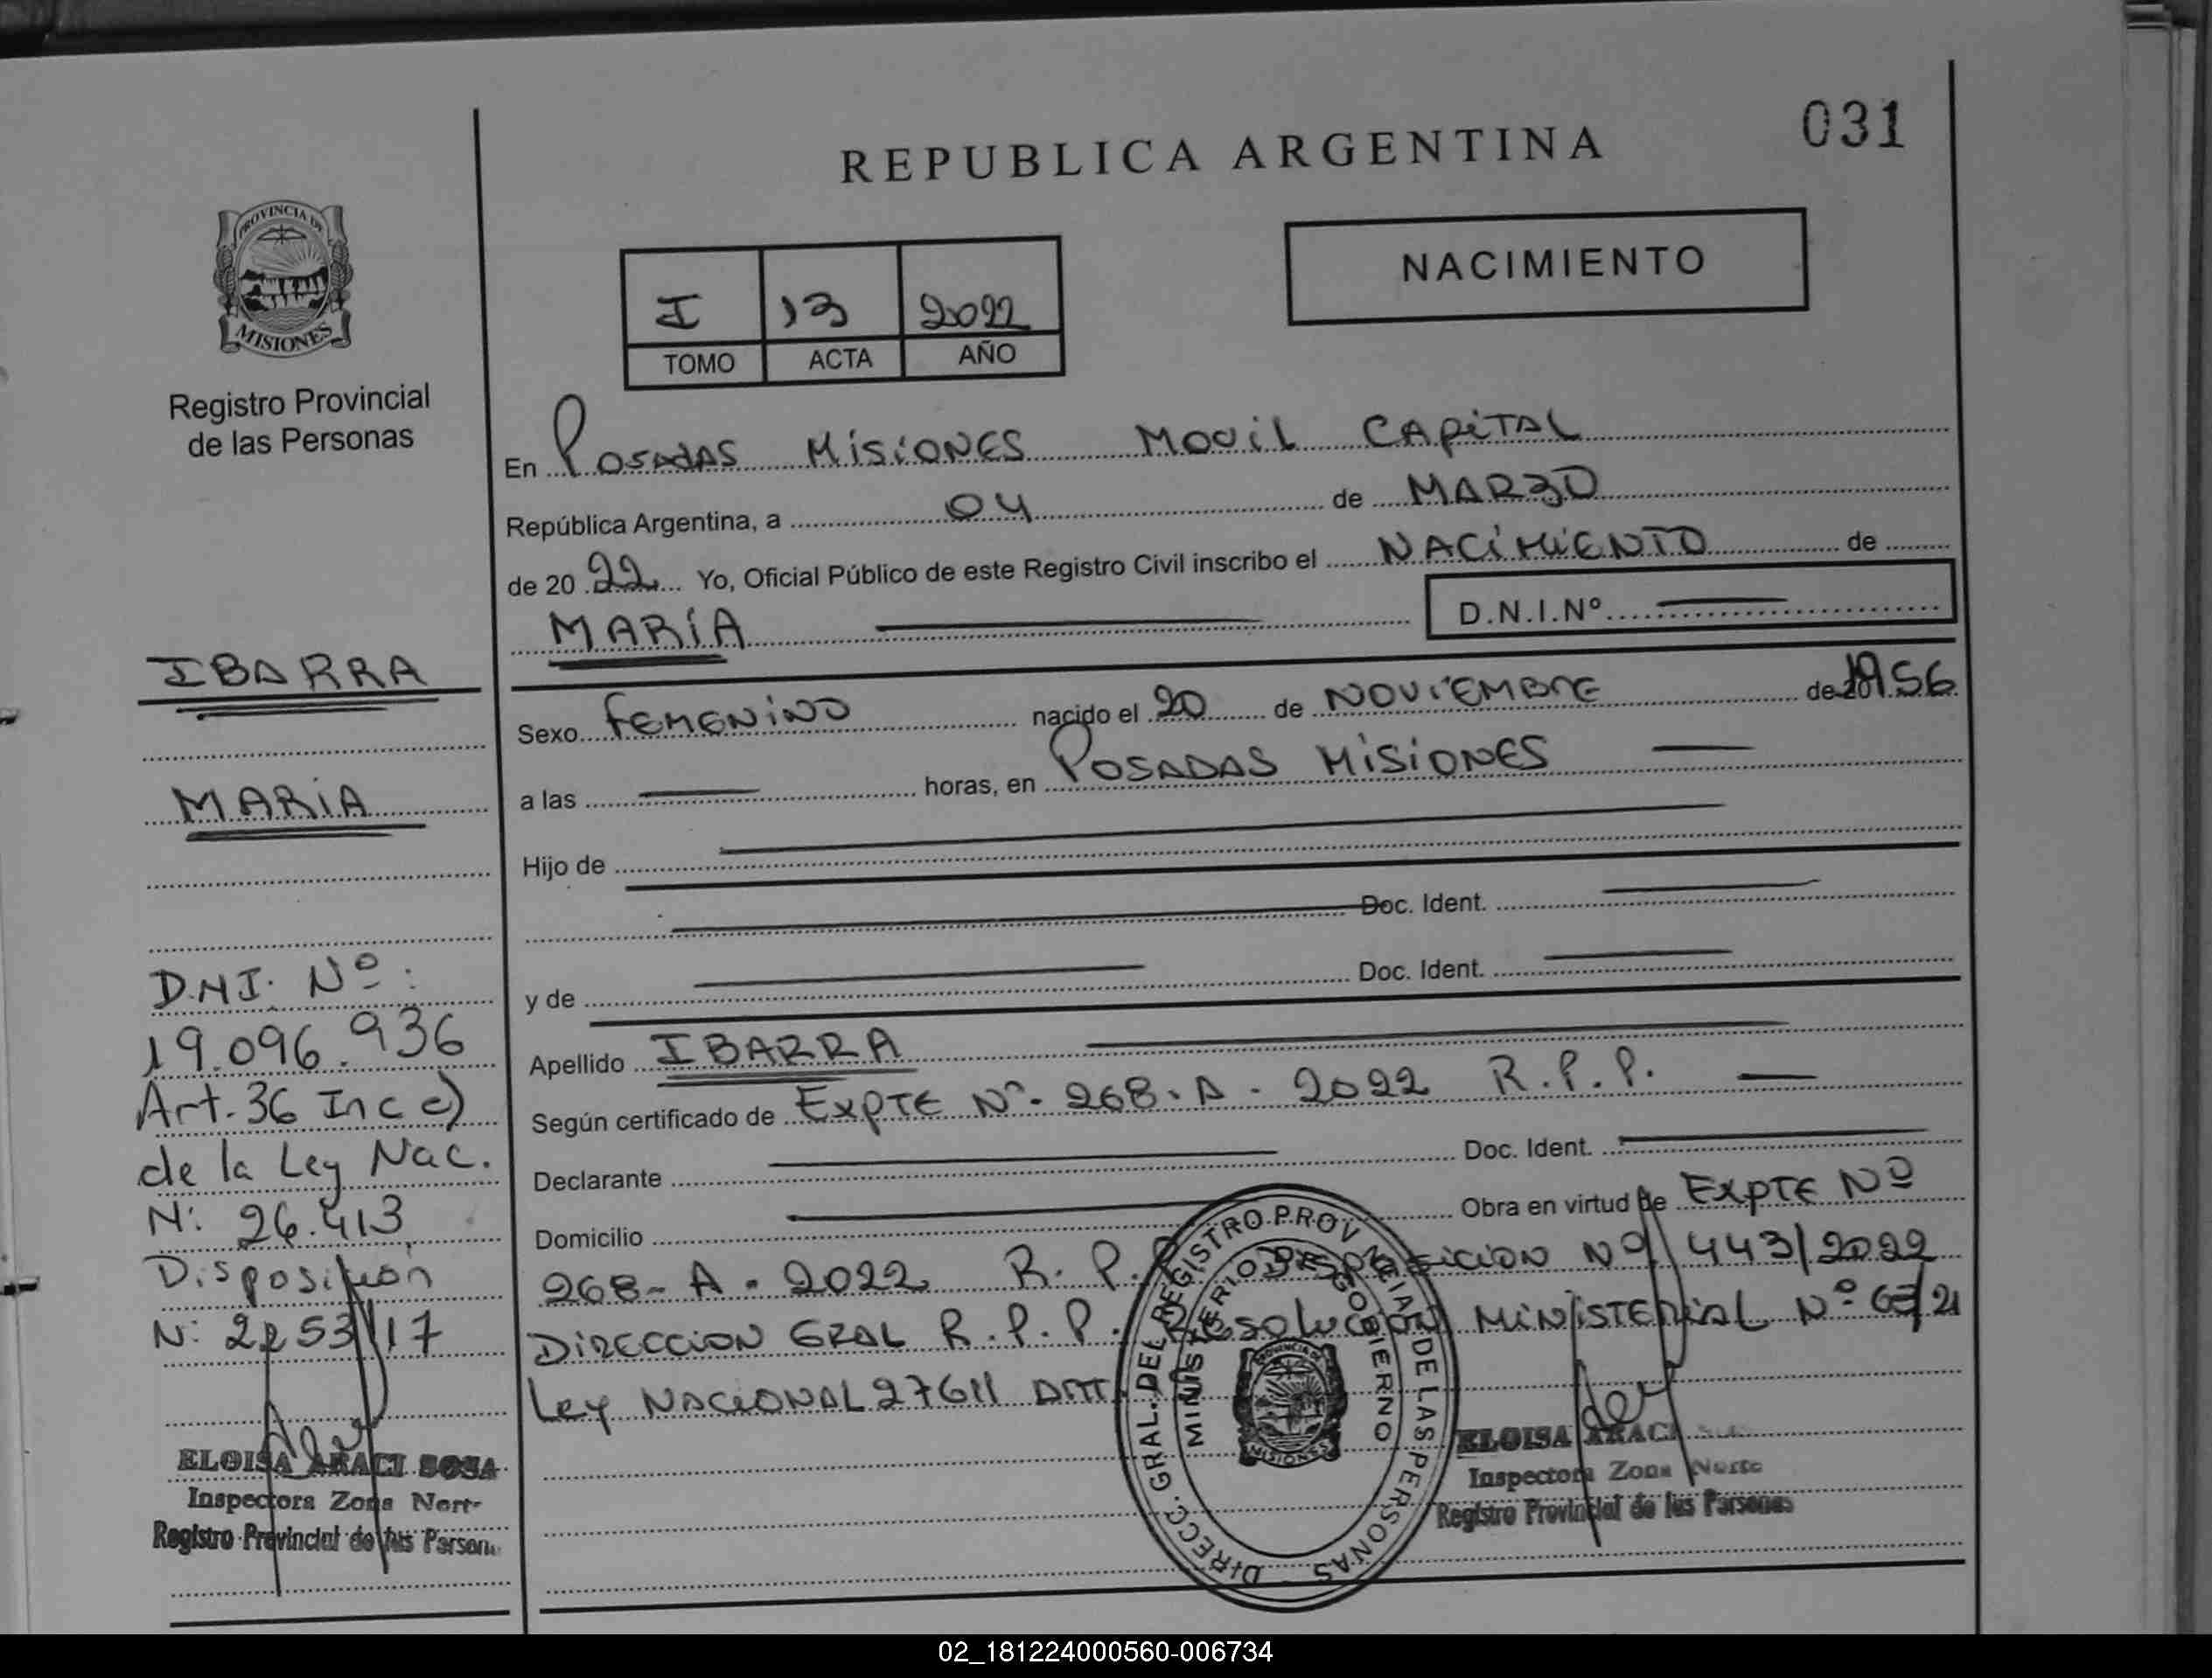 031
REPUBLICA ARGENTINA
NACIMIENTO
I 13 2022
TOMO ACTA AÑO
PROVINCIA DE
MISIONES
Registro Provincial
de las Personas
IBARRA
MARIA
D.N.I. Nº:
19.096.936
Art. 36 Inc c)
de la Ley Nac.
N: 26.413
Disposición
N: 2253/17
ELOISA ARACI SOSA
Inspectora Zona Nort
Registro Provincial de las Person
En Posadas Misiones Movil Capital
República Argentina, a 04 de MARZO
de 2022 Yo, Oficial Público de este Registro Civil inscribo el NACIMIENTO de
MARÍA D.N.I.Nº
Sexo FEMENINO nacido el 20 de NOVIEMBRE de 1956
a las horas, en POSADAS MISIONES
Hijo de
Doc. Ident.
y de Doc. Ident.
Apellido IBARRA
Según certificado de EXPTE Nº. 268. A. 2022 R.P.P.
Declarante Doc. Ident.
Domicilio Obra en virtud de EXPTE Nº
268-A-2022 R.P. Disposicion Nº 443/2022
DIRECCION GRAL R.P.P. Resolucion MINISTERIAL Nº
Ley NACIONAL 27611
DIRECC. GRAL. DEL REGISTRO PROV DE LAS PERSONAS
MINISTERIO DE GOBIERNO
MISIONES
ELOISA ARACI
Inspectora Zona Norte
Registro Provincial de las Personas
02_181224000560-006734